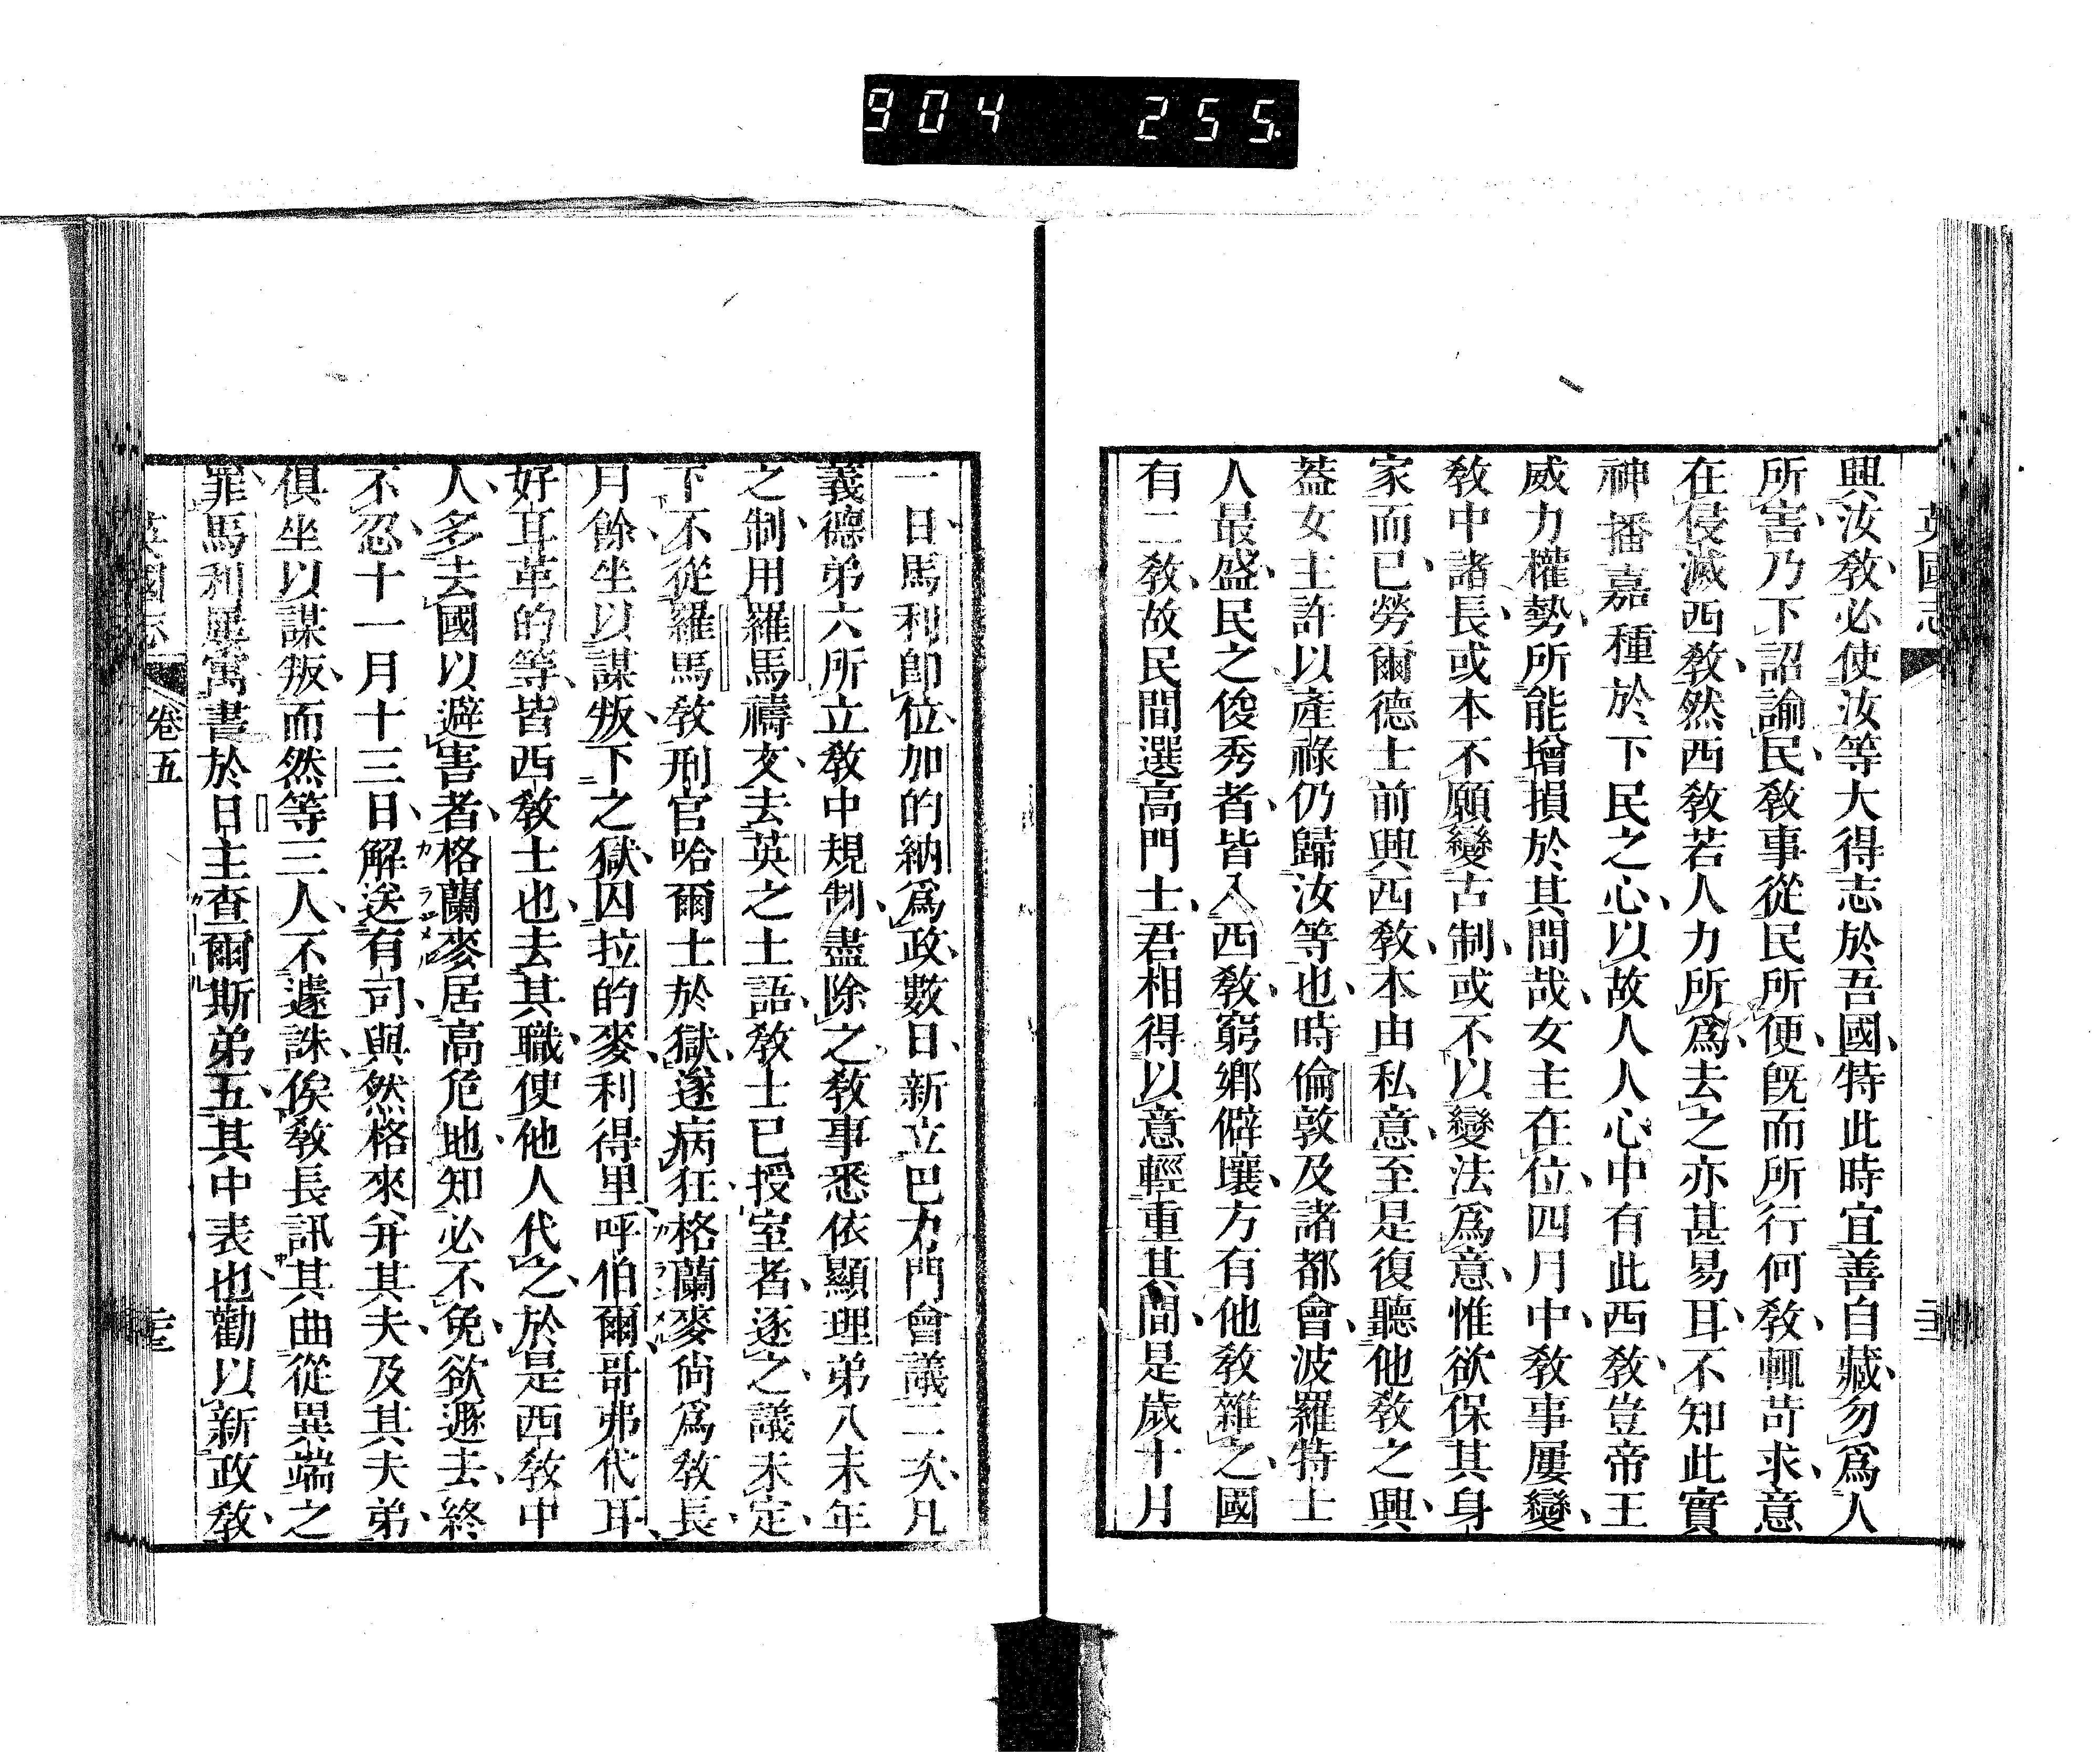 904 255
英國志
興汝敎必使汝等大得志於吾國特此時宜善自藏勿爲人
所害乃下詔諭民敎事從民所便旣而所行何敎輒苛求意
在侵滅西敎然西敎若人力所爲去之亦甚易耳不知此實
神播嘉種於下民之心以故人人心中有此西敎豈帝王
威力權勢所能增損於其間哉女主在位四月中敎事屢變
敎中諸長或本不願變古制或不以變法爲意惟欲保其身
家而已勞爾德士前興西敎本由私意至是復聽他敎之興
葢女主許以產祿仍歸汝等也時倫敦及諸都會波羅特士
人最盛民之俊秀者皆入西敎窮鄉僻壤方有他敎雜之國
有二敎故民間選高門士君相得以意輕重其間是歲十月
一日馬利卽位加的納爲政數日新立巴力門會議二次凡
義德弟六所立敎中規制盡除之敎事悉依顯理弟八末年
之制用羅馬禱文去英之土語敎士已授室者逐之議未定
下不從羅馬敎刑官哈爾士於獄遂病狂格蘭麥尙爲敎長
月餘坐以謀叛下之獄囚拉的麥利得里呼伯爾哥弗代耳
好耳革的等皆西敎士也去其職使他人代之於是西敎中
人多去國以避害者格蘭麥居高危地知必不免欲遯去終
カラニメル
カランメル
不忍十一月十三日解送有司與然格來幷其夫及其夫弟
俱坐以謀叛而然等三人不遽誅俟敎長訊其曲從異端之
罪馬利屢寓書於日主查爾斯弟五其中表也勸以新政敎
英國志 卷五